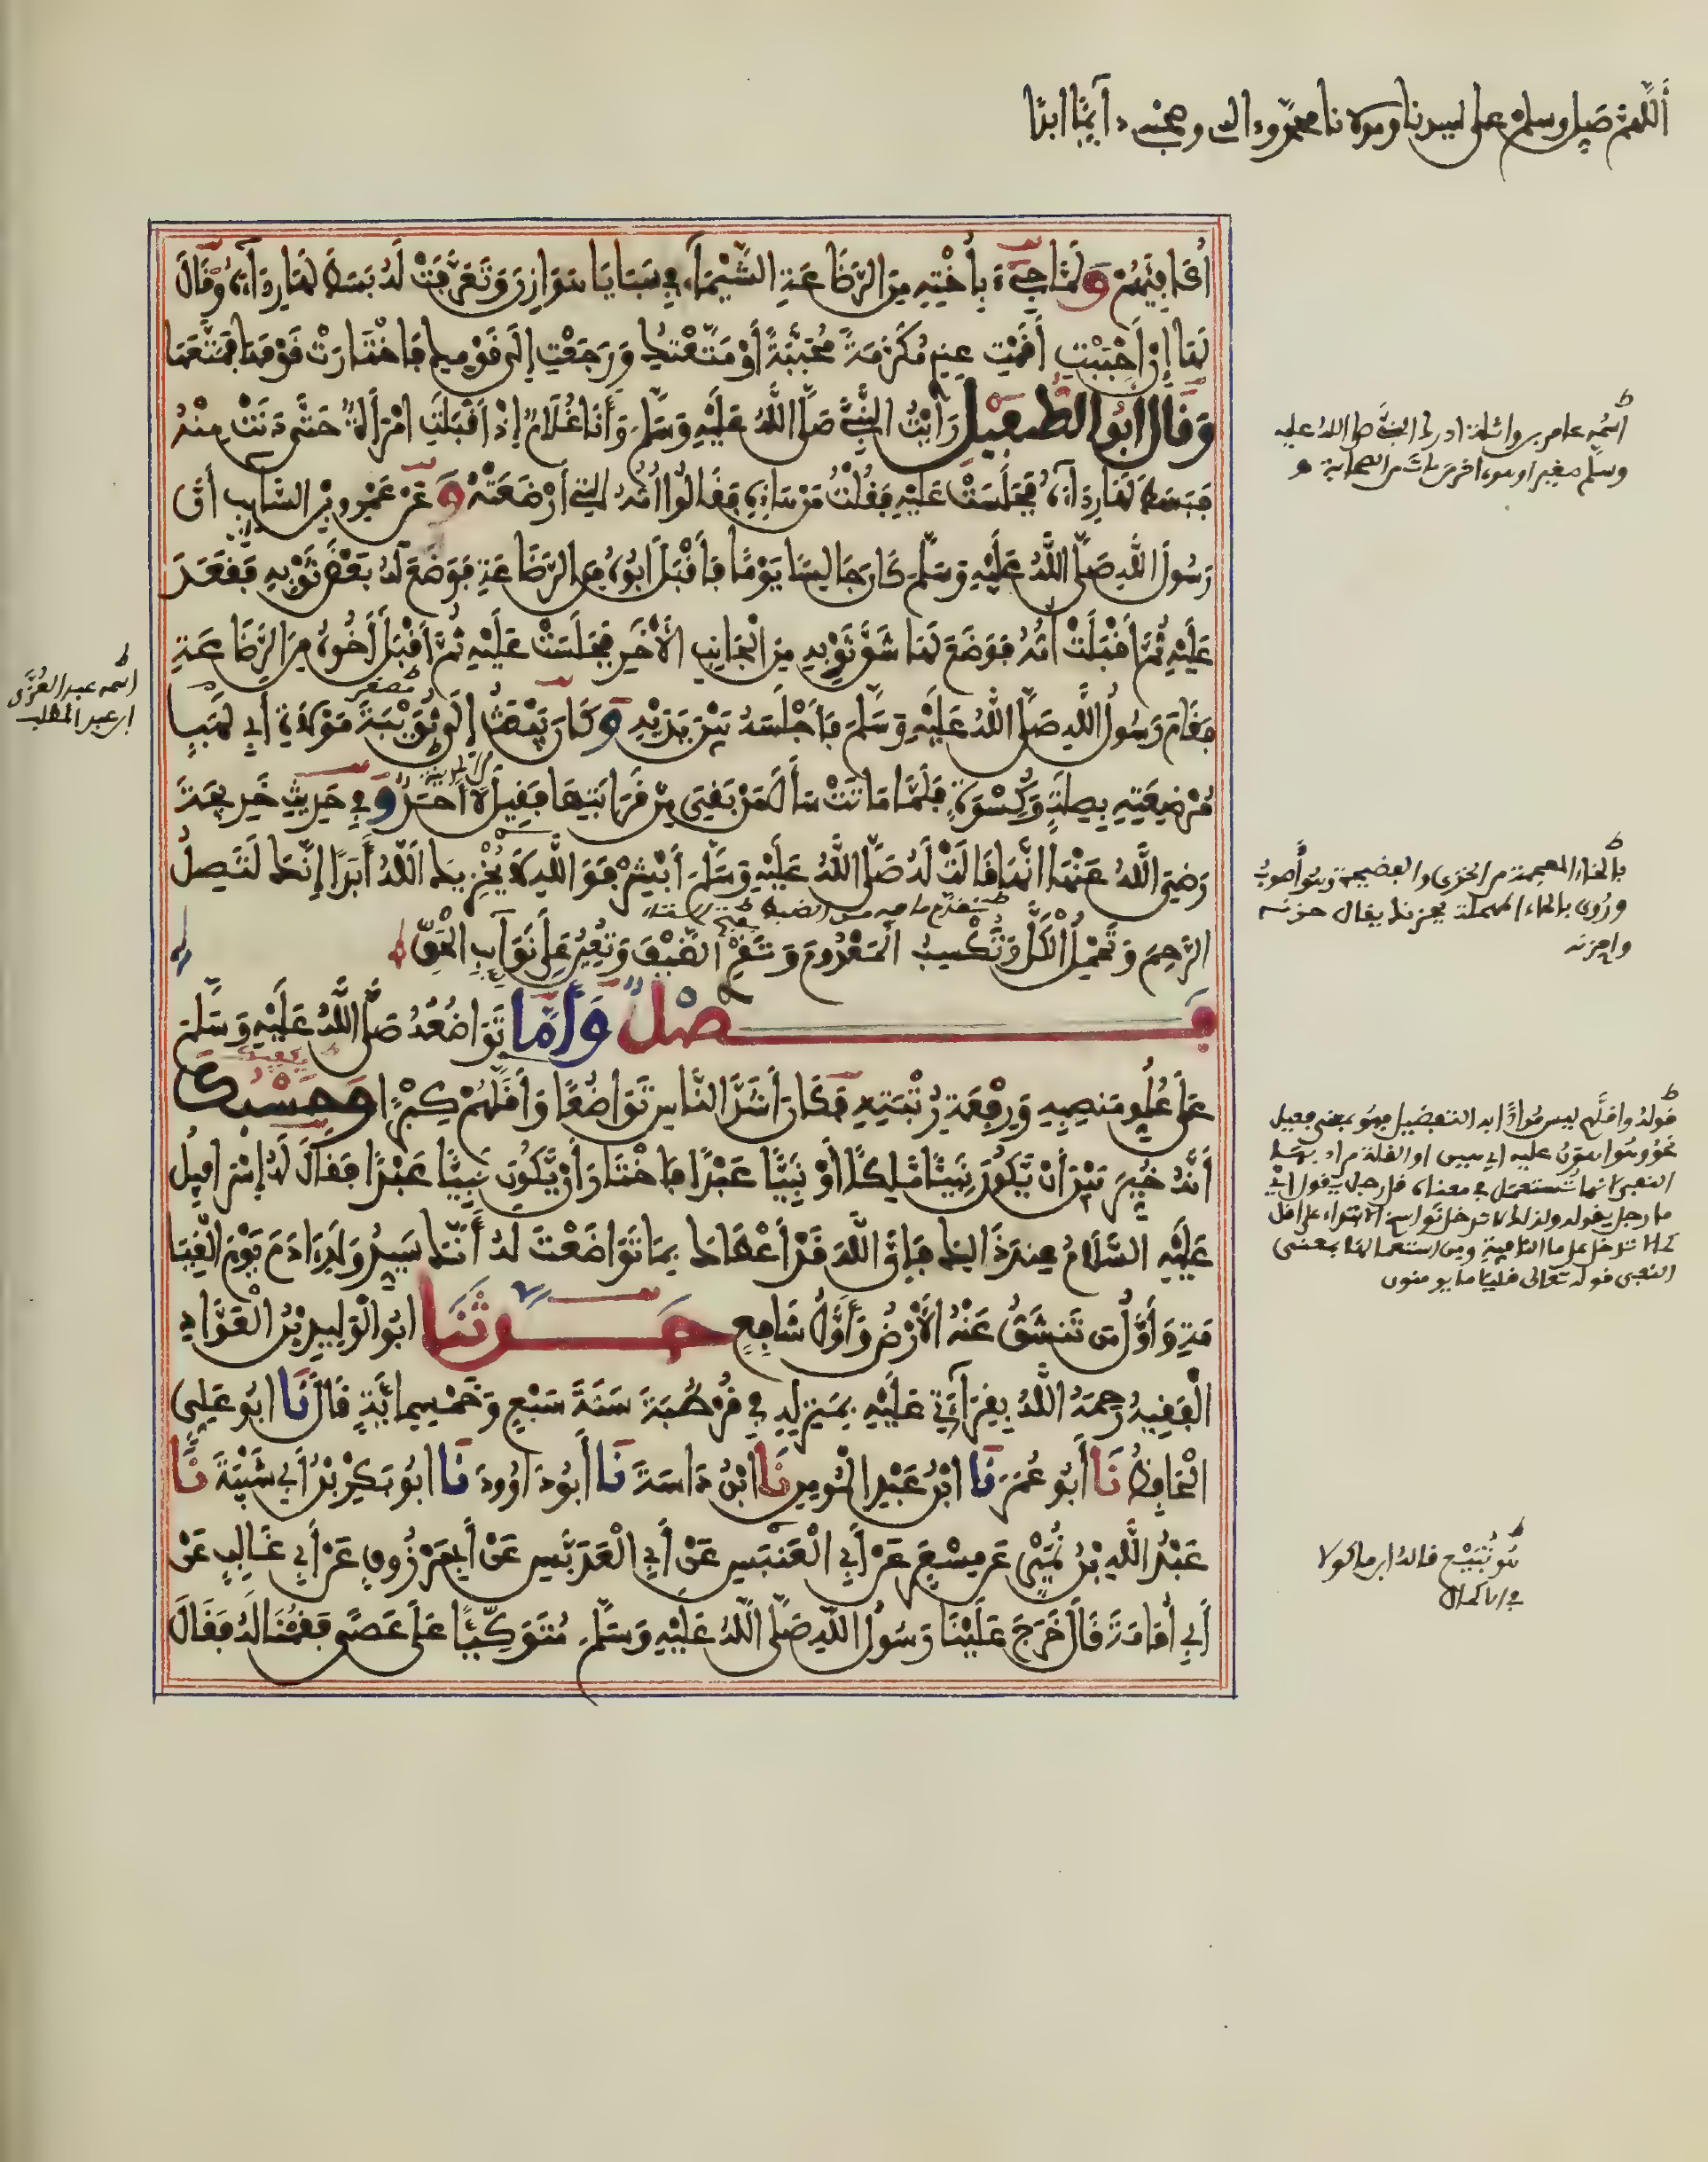 أَللَّهُمَّ صَلِّ وسلم على سيدنا ومولانا محمد وءاله وصحبه ءامينا ابدا
أُكَافِيَهُمْ وَلَمَّا جِيءَ بِأُخْتِهِ مِنَ الرَّضَاعَةِ الشَّيْمَاءِ فِي سَبَايَا هَوَازِنَ وَتَعَرَّفَتْ لَهُ بَسَطَ لَهَا رِدَاءَهُ وَقَالَ
لَهَا إِنْ أَحْبَبْتِ أَقَمْتِ عِندِي مُكَرَّمَةً مُحَبَّبَةً أَوْ مَتَّعْتُكِ وَرَجَعْتِ إِلَى قَوْمِكِ فَاخْتَارَتْ قَوْمَهَا فَمَتَّعَهَا
وَقَالَ أَبُو الطُّفَيْلِ رَأَيْتُ النَّبِيَّ صَلَّى اللَّهُ عَلَيْهِ وَسَلَّمَ وَأَنَا غُلَامٌ إِذْ أَقْبَلَتِ امْرَأَةٌ حَتَّى دَنَتْ مِنْهُ
فَبَسَطَ لَهَا رِدَاءَهُ فَجَلَسَتْ عَلَيْهِ فَقُلْتُ مَنْ هَاذِهِ فَقَالُوا أُمُّهُ الَّتِي أَرْضَعَتْهُ وَعَنْ عَمْرِو بْنِ السَّايِبِ أَنَّ
رَسُولَ اللَّهِ صَلَّى اللَّهُ عَلَيْهِ وَسَلَّمَ كَانَ جَالِسًا يَوْمًا فَأَقْبَلَ أَبُوهُ مِنَ الرَّضَاعَةِ فَوَضَعَ لَهُ بَعْضَ ثَوْبِهِ فَقَعَدَ
عَلَيْهِ ثُمَّ أَقْبَلَتْ أُمُّهُ فَوَضَعَ لَهَا شَقَّ ثَوْبِهِ مِنَ الْجَانِبِ الْأَخَرِ فَجَلَسَتْ عَلَيْهِ ثُمَّ أَقْبَلَ أَخُوهُ مِنَ الرَّضَاعَةِ
مصغر
فَقَامَ رَسُولُ اللَّهِ صَلَّى اللَّهُ عَلَيْهِ وَسَلَّمَ فَأَجْلَسَهُ بَيْنَ يَدَيْهِ وَكَانَ يَبْعَثُ إِلَى ثُوَيْبَةَ مَوْلَاةِ أَبِي لَهَبٍ
مُرْضِعَتِهِ بِصِلَةٍ وَكِسْوَةٍ فَلَمَّا مَاتَتْ سَأَلَ مَنْ بَقِيَ مِنْ قَرَابَتِهَا فَقِيلَ لَا أَحَدَ وَفِي حَدِيثِ خَدِيجَةَ
رَضِيَ اللَّهُ عَنْهَا أَنَّهَا قَالَتْ لَهُ صَلَّى اللَّهُ عَلَيْهِ وَسَلَّمَ أَبْشِرْ فَوَاللَّهِ لَا يُخْزِيكَ اللَّهُ أَبَدًا إِنَّكَ لَتَصِلُ
الرَّحِمَ وَتَحْمِلُ الْكَلَّ وَتَكْسِبُ الْمَعْدُومَ وَتَقْرِي الضَّيْفَ وَتُعِينُ عَلَى نَوَائِبِ الْحَقِّ
فَصْلٌ وَأَمَّا تَوَاضُعُهُ صَلَّى اللَّهُ عَلَيْهِ وَسَلَّمَ
عَلَى عُلُوِّ مَنصِبِهِ وَرِفْعَةِ رُتْبَتِهِ فَكَانَ أَشَدَّ النَّاسِ تَوَاضُعًا وَأَقَلَّهُمْ كِبْرًا وَحَسْبُكَ
أَنَّهُ خُيِّرَ بَيْنَ أَنْ يَّكُونَ نَبِيًّا مَلِكًا أَوْ نَبِيًّا عَبْدًا فَاخْتَارَ أَنْ يَّكُونَ نَبِيًّا عَبْدًا فَقَالَ لَهُ إِسْرَافِيلُ
عَلَيْهِ السَّلَامُ عِندَ ذَالِكَ فَإِنَّ اللَّهَ قَدْ أَعْطَاكَ بِمَا تَوَاضَعْتَ لَهُ أَنَّكَ سَيِّدُ وَلَدِ ءَادَمَ يَوْمَ الْقِيَا
مَةِ وَأَوَّلُ مَن تَنشَقُّ عَنْهُ الْأَرْضُ وَأَوَّلُ شَافِعٍ حَدَّثَنَا أَبُو الْوَلِيدِ بْنُ الْعَوَّادِ
الْفَقِيهُ رَحِمَهُ اللَّهُ بِقِرَاءَتِي عَلَيْهِ بِمَنْزِلِهِ فِي قُرْطُبَةَ سَنَةَ سَبْعٍ وَخَمْسِمِائَةٍ قَالَ نَا أَبُو عَلِيٍّ
الْحَافِظُ نَا أَبُو عُمَرَ نَا ابْنُ عَبْدِ الْمُومِنِ نَا ابْنُ دَاسَةَ نَا أَبُو دَاوُودَ نَا أَبُو بَكْرِ بْنُ أَبِي شَيْبَةَ نَا
عَبْدُ اللَّهِ بْنُ نُمَيْرٍ عَن مِسْعَرٍ عَنْ أَبِي الْعَنْبَسِ عَنْ أَبِي الْعَدَبَّسِ عَنْ أَبِي مَرْزُوقٍ عَنْ أَبِي غَالِبٍ عَنْ
أَبِي أُمَامَةَ قَالَ خَرَجَ عَلَيْنَا رَسُولُ اللَّهِ صَلَّى اللَّهُ عَلَيْهِ وَسَلَّمَ مُتَوَكِّئًا عَلَى عَصًى فَقُمْنَا لَهُ فَقَالَ
اسمه عامر بن واثلة ادرك النبي صلى الله عليه
وسلم صغيرا وهو ءاخر من مات من الصحابة
اسمه عبد العُزَّى
ابن عبد المطلب
بالخاء المعجمة من الخزي والفضيحة وهو أصوب
ورُوي بالحاء المهملة يحزنك يقال حزنه
واحزنه
قوله واقلهم ليس مرادًا به التفضيل فهو بمعنى فعيل
نحو وهو اهون عليه اي هين او القلة مراد بها
النفي لانها تستعمل في معناه قل رجل يقول اي
ما رجل يقوله ولذلك لا تدخل نواسخ الابتداء على اقل
كما لا تدخل على ما النافية ومن استعمالها بمعنى
النفي قوله تعالى قليلا ما يومنون
هو نُبَيْح قاله ابن ماكولا
في الاكمال